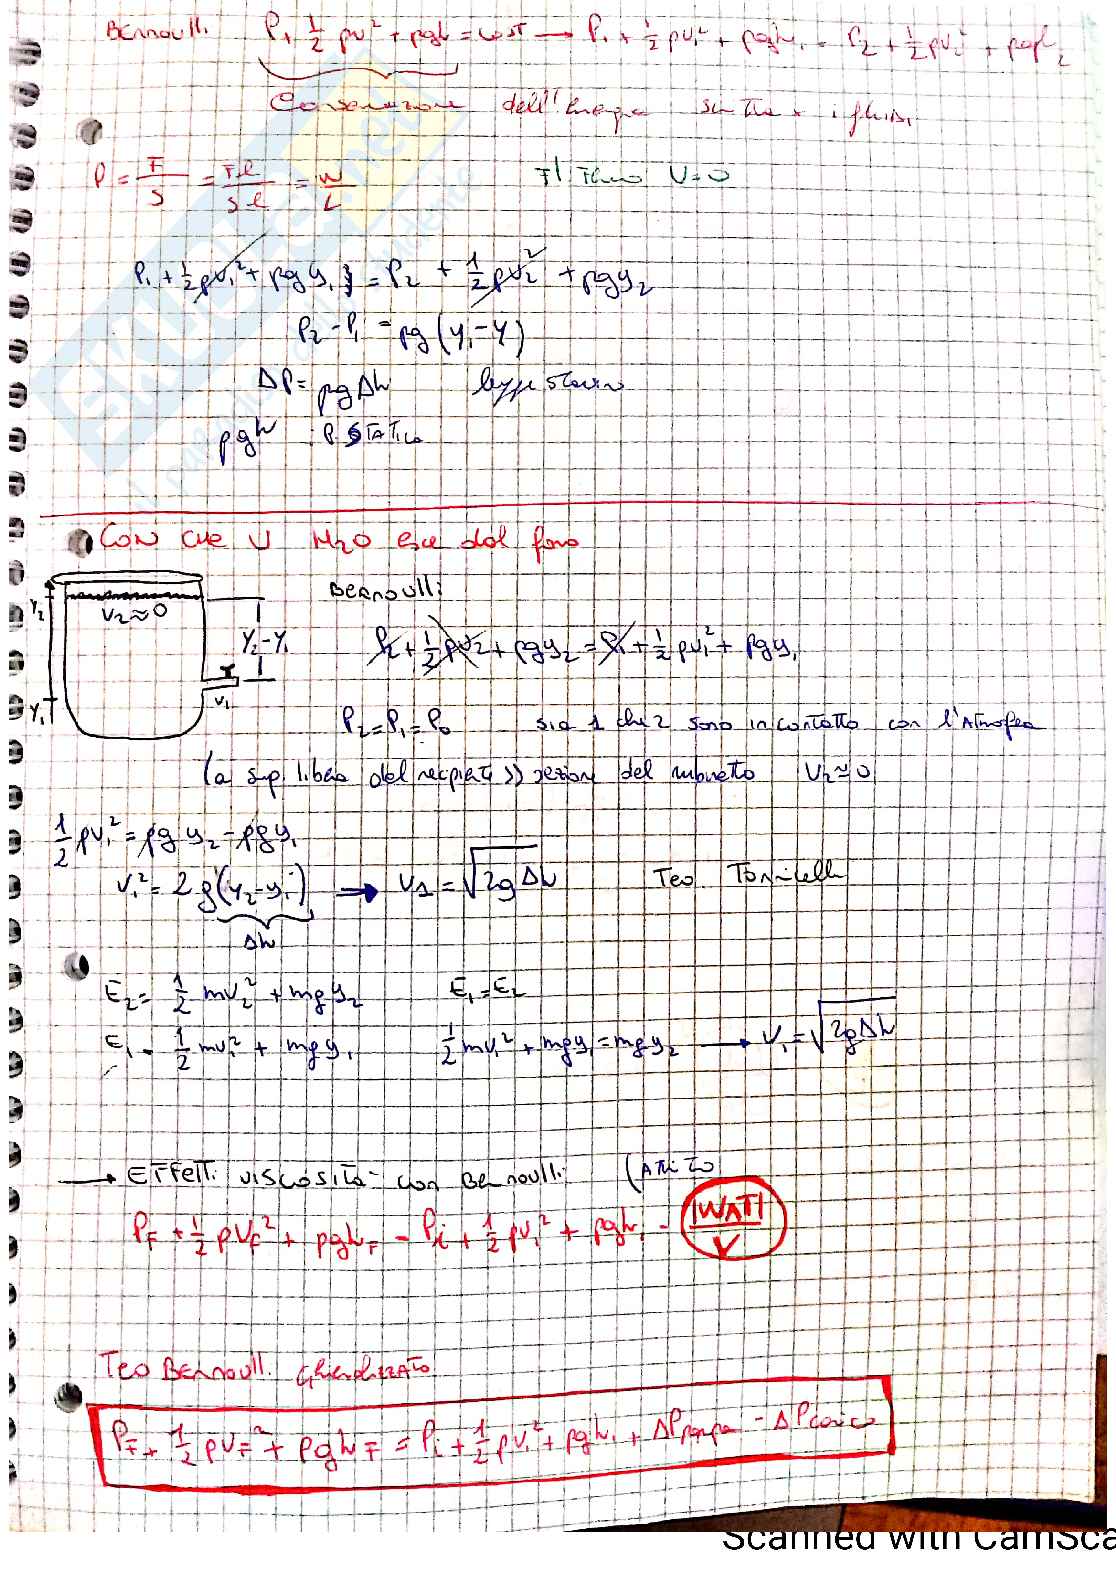 Bernoulli P + 1/2 ρv² + ρgh = cost → P₁ + 1/2 ρv₁² + ρgh₁ = P₂ + 1/2 ρv₂² + ρgh₂
Conservazione dell'Energia x i fluidi
P = F/S = Fl/Sl = W/L
V=0
P₁ + 1/2 ρv₁² + ρgy₁ = P₂ + 1/2 ρv₂² + ρgy₂
P₂ - P₁ = ρg(y₁-y)
ΔP = ρgΔh legge Stevin
ρgh : P. STATICA
CON CHE V H₂O esce dal foro
Bernoulli
Y₂
V₂≈0
Y₂-Y₁
P₂ + 1/2 ρv₂ + ρgy₂ = P₁ + 1/2 ρv₁² + ρgy₁
V₁
Y₁
P₂=P₁=P₀ sia 1 che 2 sono in contatto con l'Atmosfera
la sup libera del recipiente >> sezione del rubinetto V₂≈0
1/2 ρv₁² = ρgy₂ - ρgy₁
V₁² = 2g(y₂-y₁) → V₁ = √2gΔh Teo Torricelli
Δh
E₂ = 1/2 mv₂² + mgy₂ E₁=E₂
E₁ = 1/2 mv₁² + mgy₁ 1/2 mv₁² + mgy₁ = mgy₂ → V₁ = √2gΔh
→ Effetti viscosità con Bernoulli (Attrito)
P_F + 1/2 ρV_F² + ρgh_F = P_i + 1/2 ρv_i² + ρgh_i - |WATT|/V
Teo Bernoulli Generalizzato
P_F + 1/2 ρv_F² + ρgh_F = P_i + 1/2 ρv_i² + ρgh_i + ΔPpompa - ΔPcarico
Scanned with CamSca